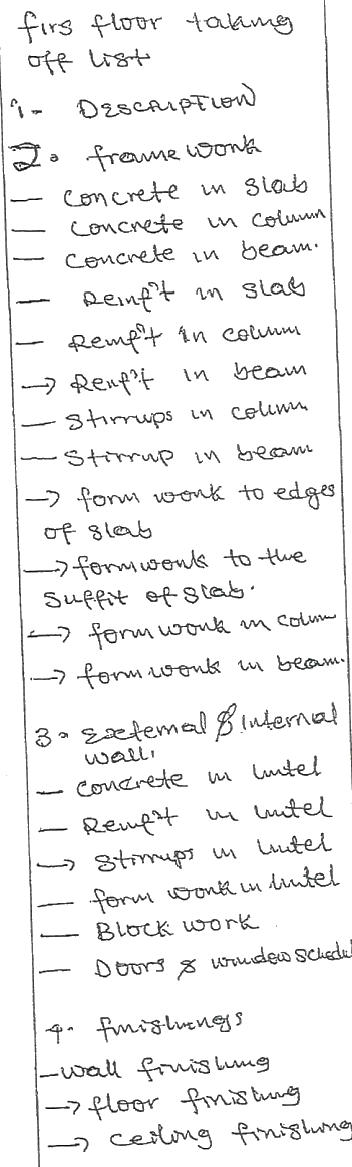 firs floor taking
off list
1- DESCRIPTION
2. frame work
— Concrete in slab
— Concrete in column
— Concrete in beam.
— Reinf't in slab
— Reinf't in column
→ Renf't in beam
— Stirrups in column
— Stirrup in beam
→ form work to edges
of slab
→ formwork to the
suffit of slab.
→ formwork in column
→ formwork in beam.
3. External & Internal
wall.
— Concrete in lintel
— Reinf't in lintel
→ Stirrups in lintel
— form work in lintel
— Block work
— Doors & window schedul
4. finishings
- wall finishing
→ floor finishing
→ ceiling finishing